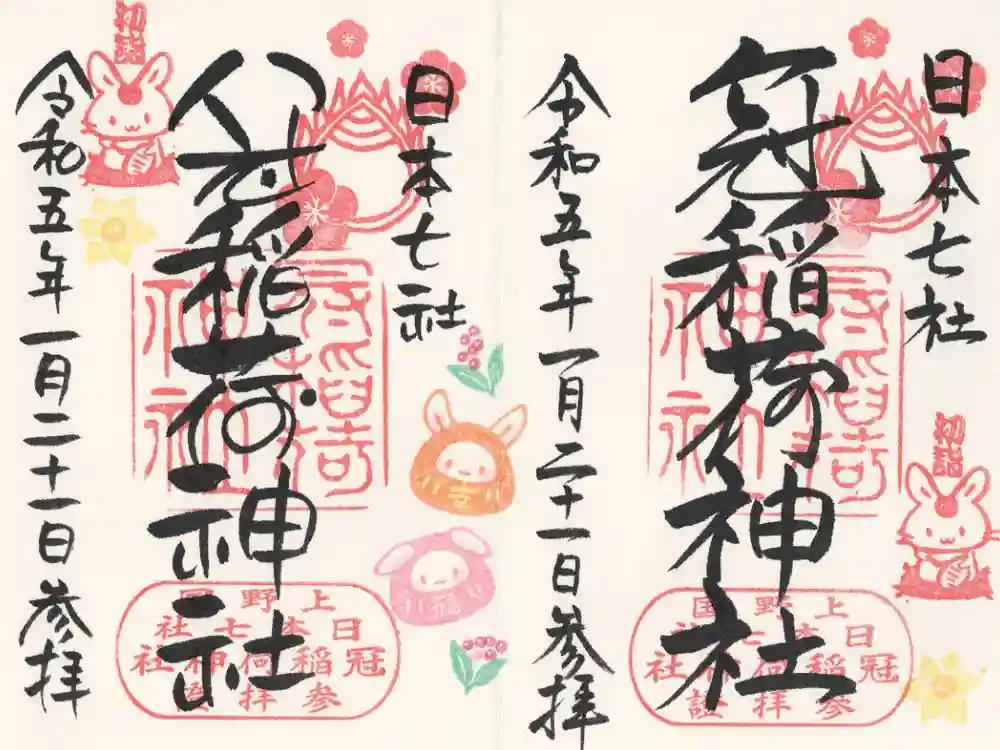 日本七社
冠稲荷神社
令和五年一月二十一日参拝
初詣
上野国
日本七社
冠稲荷神社
参拝證
日本七社
冠稲荷神社
令和五年一月二十一日参拝
初詣
上野国
日本七社
冠稲荷神社
参拝證